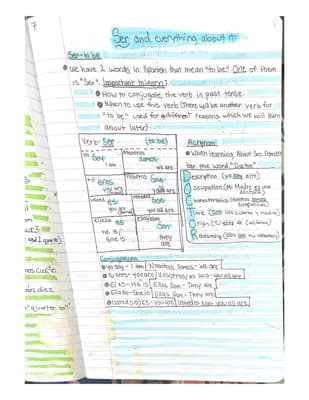 7
Ser and everything about it!
Ser-to be
We have 2 words in Spanish that mean "to be". One of them
is "Ser". Important to learn:
How to conjugate the verb in past tense.
When to use this verb (there will be another verb for
"to be" used for different reasons which we will learn
about later).
Verb- Ser (to be)
Soy
I am
Nosotros
Somos
we are
eres
you are
Vosotros Sois
You all are
usted es
you are
Ustedes Son
you all are
el/ella es
he is/
she is
Ellos/ellas
Son
they
are
Acronym
When learning About Ser, Remem
ber the word "Doctor"
Description (yo soy alto)
Occupation (mi Madre es una
doctora)
Characteristics (nosotros somos
simpáticos)
Time (Son las cuatro y media)
Origin (
Relationship (
Conjugations
yo soy - I am Nosotros Somos- we are
Tú eres - you are Vosotros/as sois - you all are
El es - He is Ellos Son - They are
Ella es - She is Ellas Son - They are
Usted es - you are Ustedes Son - you all are